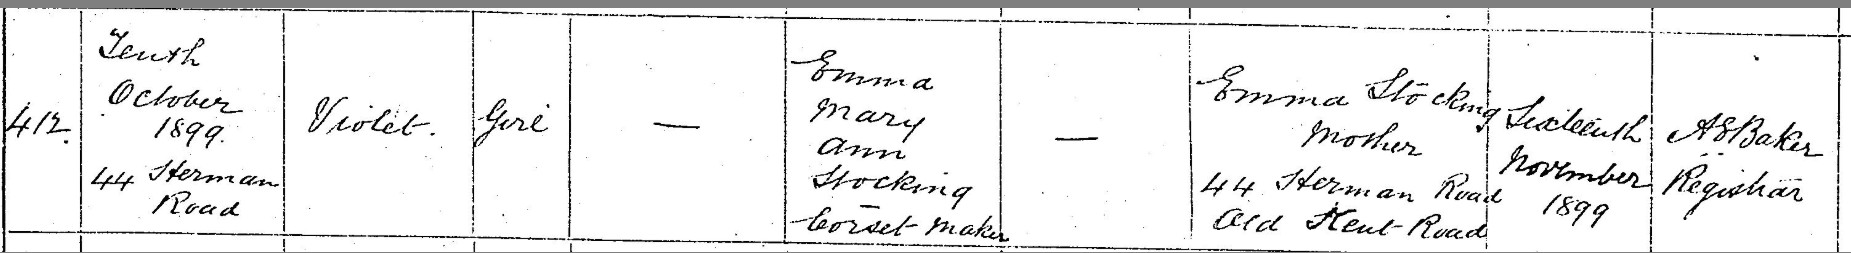 412.
Tenth
October
1899.
44 Herman
Road
Violet.
Girl
—
Emma
Mary
Ann
Stocking
Corset Maker
—
Emma Stocking
Mother
44 Herman Road
Old Kent Road
Sixteenth
November
1899
A E Baker
Registrar